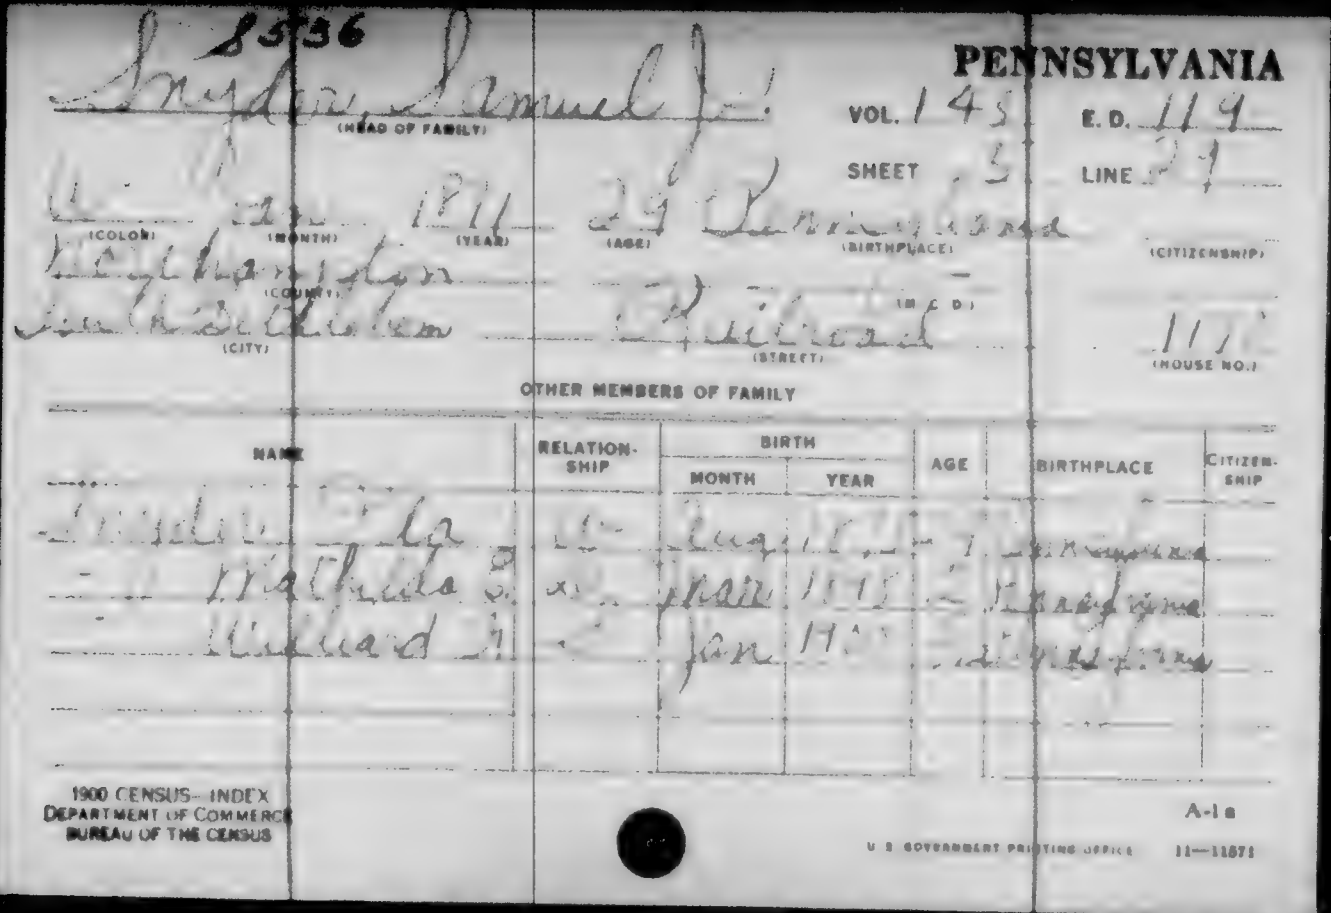 8536
Snyder, Samuel J.
PENNSYLVANIA
(HEAD OF FAMILY)
VOL. 145 E. D. 119
SHEET 5 LINE
W Jan 1871 29 Pennsylvania
(COLOR) (MONTH) (YEAR) (AGE) (BIRTHPLACE) (CITIZENSHIP)
Northampton
(COUNTY) (M. C. D.)
South Bethlehem Railroad
(CITY) (STREET) (HOUSE NO.)
OTHER MEMBERS OF FAMILY
NAME RELATION-SHIP BIRTH MONTH YEAR AGE BIRTHPLACE CITIZEN-SHIP
Snyder W Aug Pennsylvania
Mathilda Mar Pennsylvania
Willard Jan Pennsylvania
1900 CENSUS—INDEX
DEPARTMENT OF COMMERCE
BUREAU OF THE CENSUS
A-1a
U. S. GOVERNMENT PRINTING OFFICE 11—11571